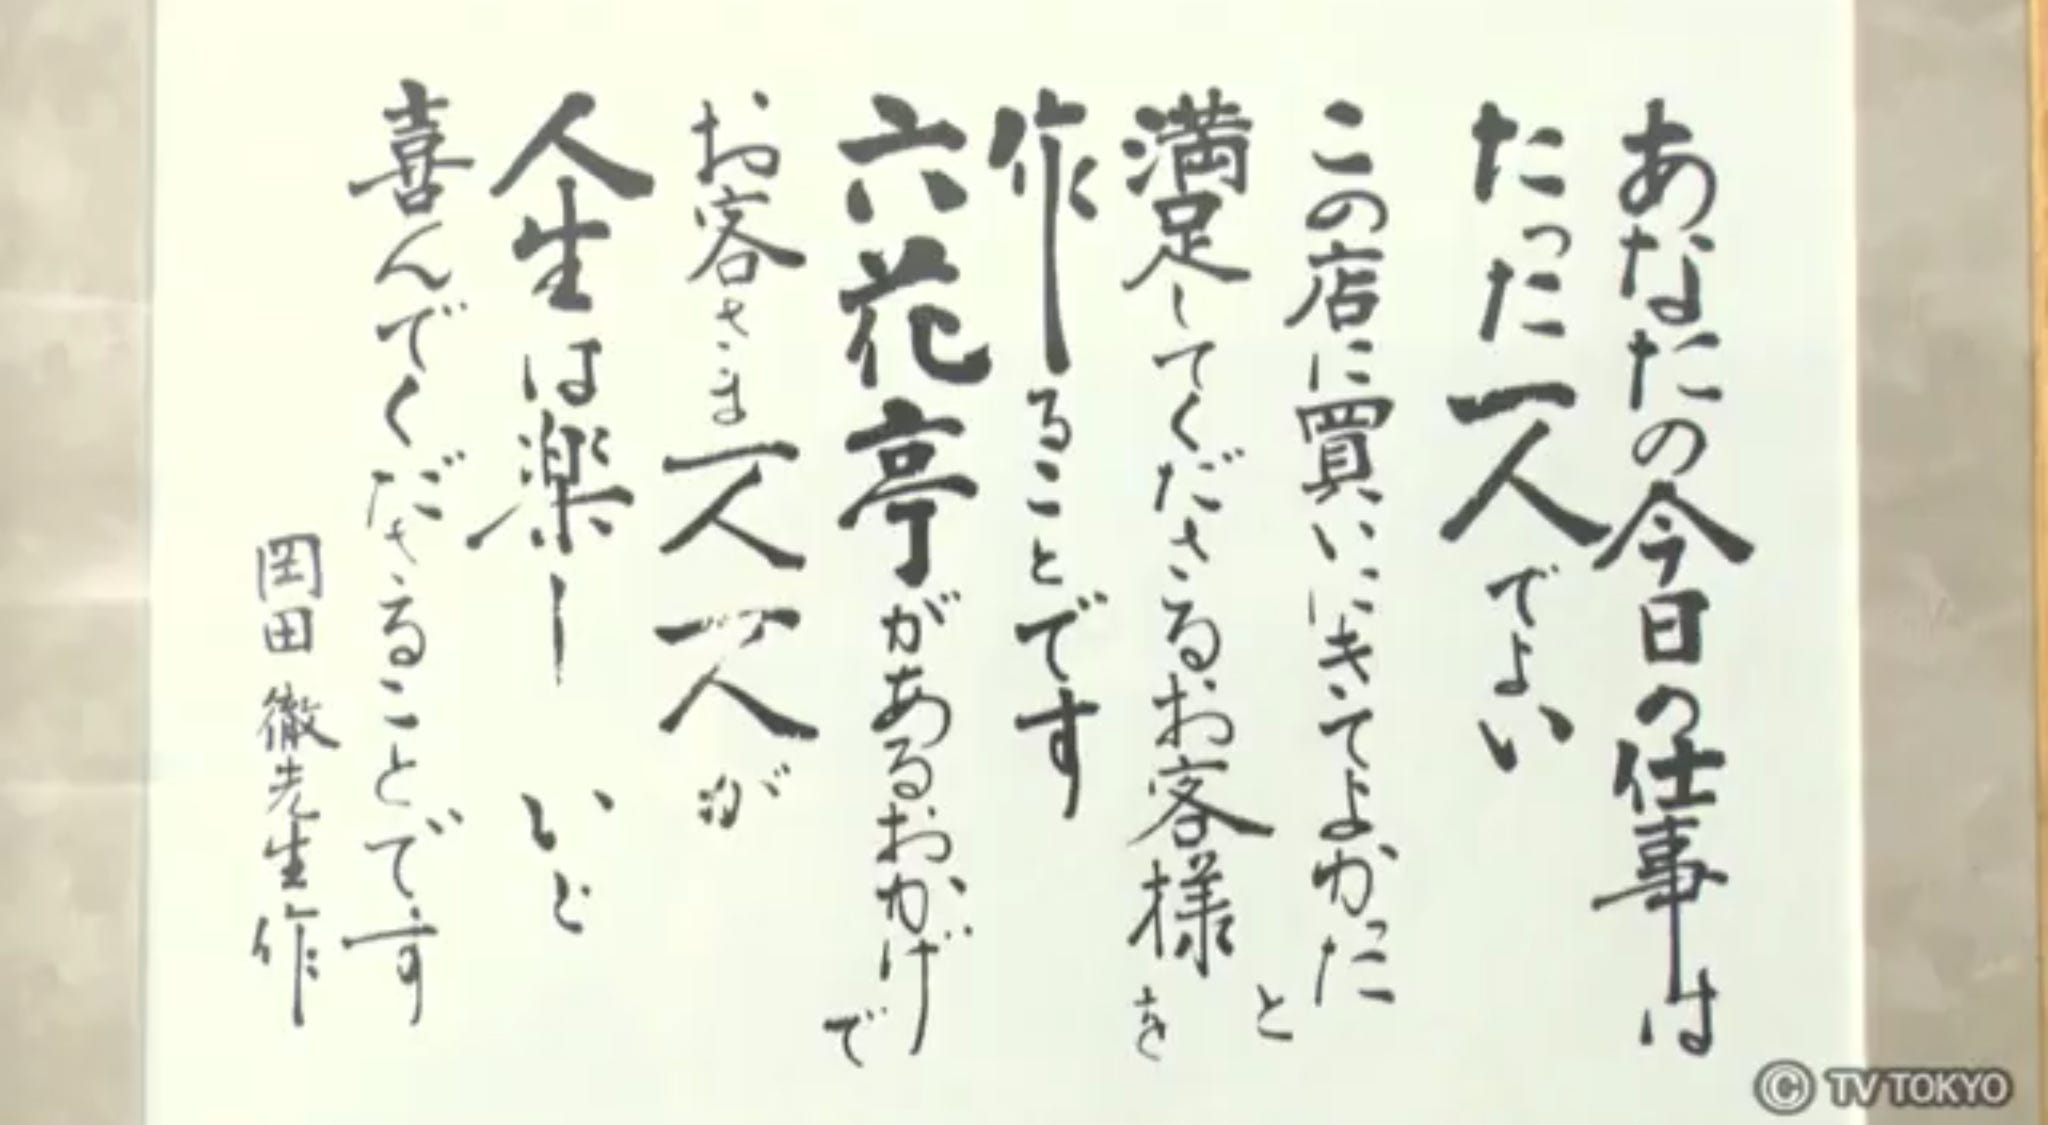 あなたの今日の仕事は
たった一人でよい
この店に買いにきてよかったと
満足してくださるお客様を
作ることです
六花亭があるおかげで
お客さま一人一人が
人生は楽しいと
喜んでくださることです
岡田徹先生作
© TV TOKYO